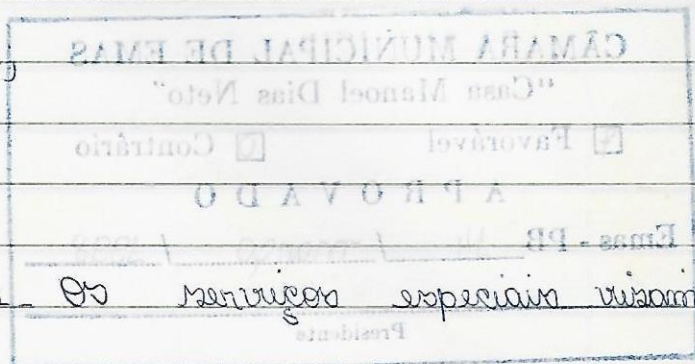 CÂMARA MUNICIPAL DE EMAS
"Casa Manoel Dias Neto"
Favorável Contrário
APROVADO
Emas - PB / março / 1998
- Os serviços especiais visam
Presidente